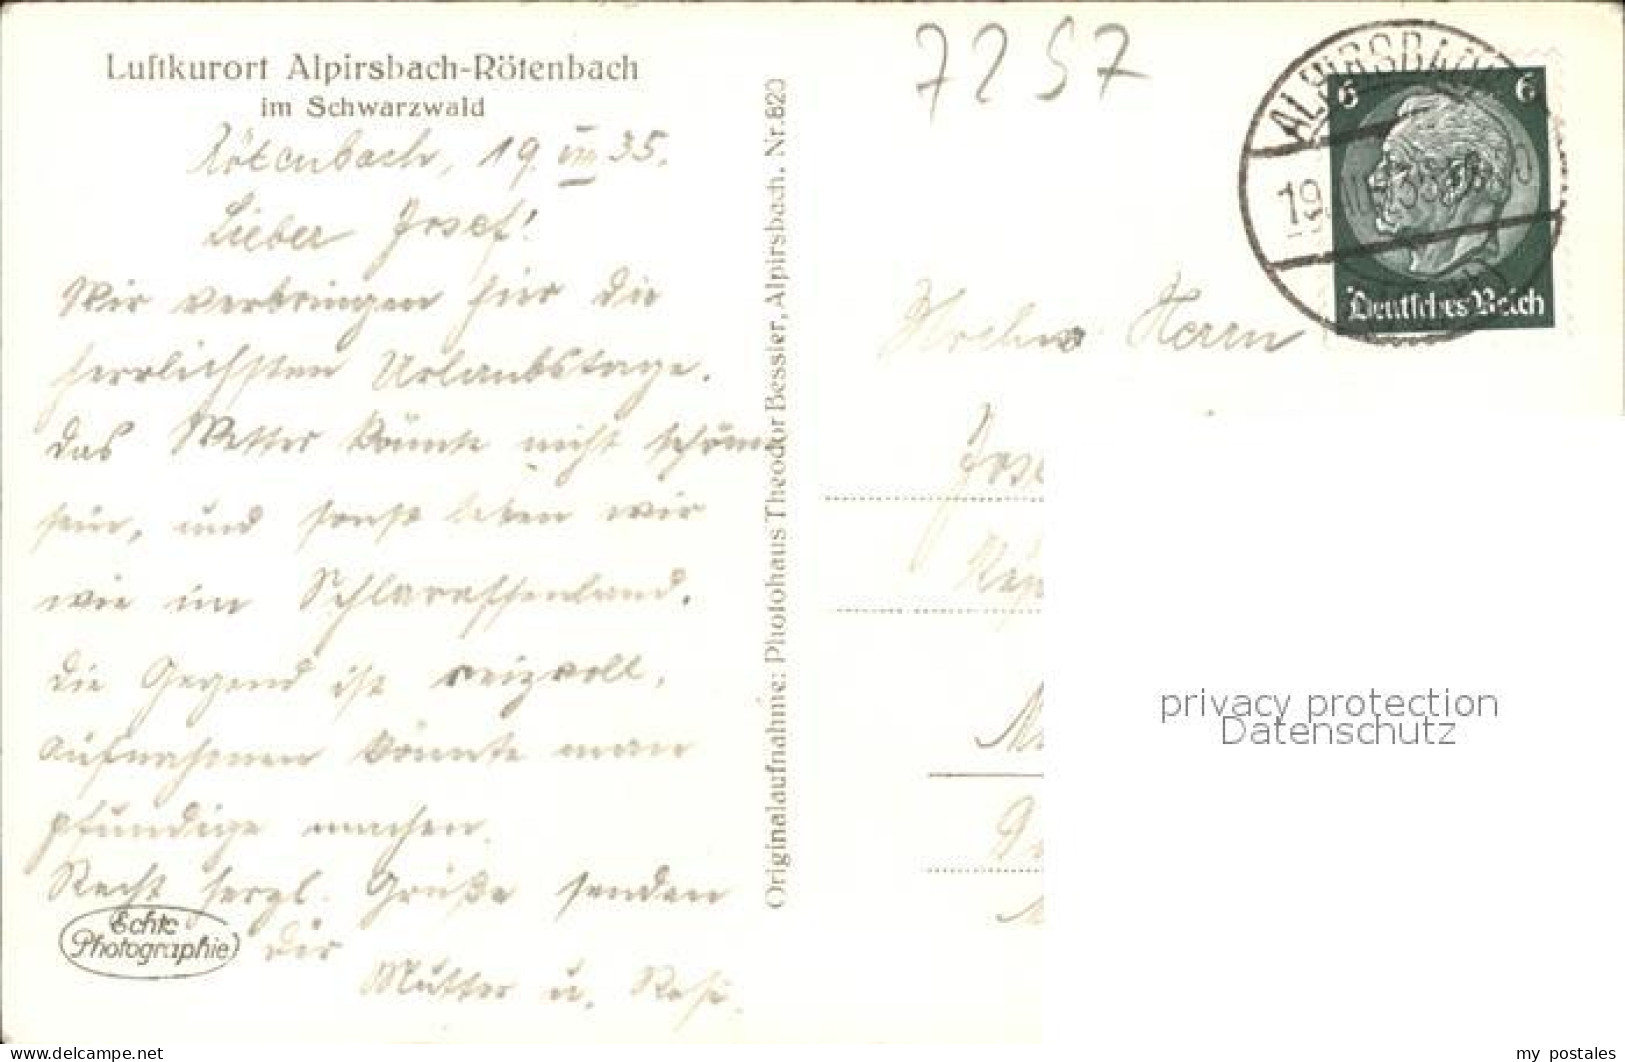 Luftkurort Alpirsbach-Rötenbach
im Schwarzwald
Rötenbach, 19. VIII 35.
Lieber Josef!
Wir verbringen hier die
herrlichsten Urlaubstage.
Das Wetter könnte nicht schöner
sein, und sonst leben wir
wie im Schlaraffenland.
Die Gegend ist reizvoll,
Aufnahmen könnte man
pfundige machen.
Recht herzl. Grüße senden
Dir
Mutter u. Rosi.
Echte
Photographie
Originalaufnahme: Photohaus Theodor Bessler, Alpirsbach. Nr. 820
7257
ALPIRSBACH
19.
6 6
Deutsches Reich
Herrn
Jose
privacy protection
Datenschutz
www.delcampe.net
my_postales